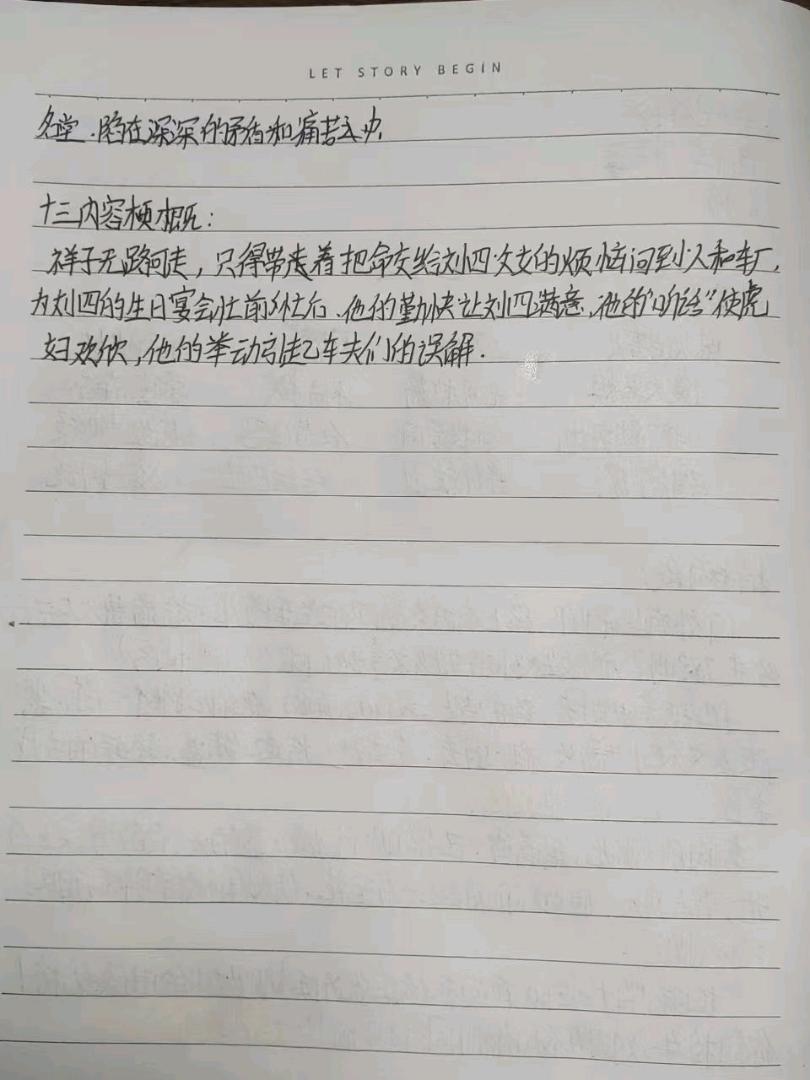 LET STORY BEGIN
陷在深深的矛盾和痛苦之中.
十三内容梗概：
祥子无路可走，只得带着把命交给刘四父女的烦恼回到人和车厂，
为刘四的生日宴会忙前忙后.他的勤快让刘四满意，他的“听话”使虎
妞欢欣，他的举动引起了车夫们的误解.